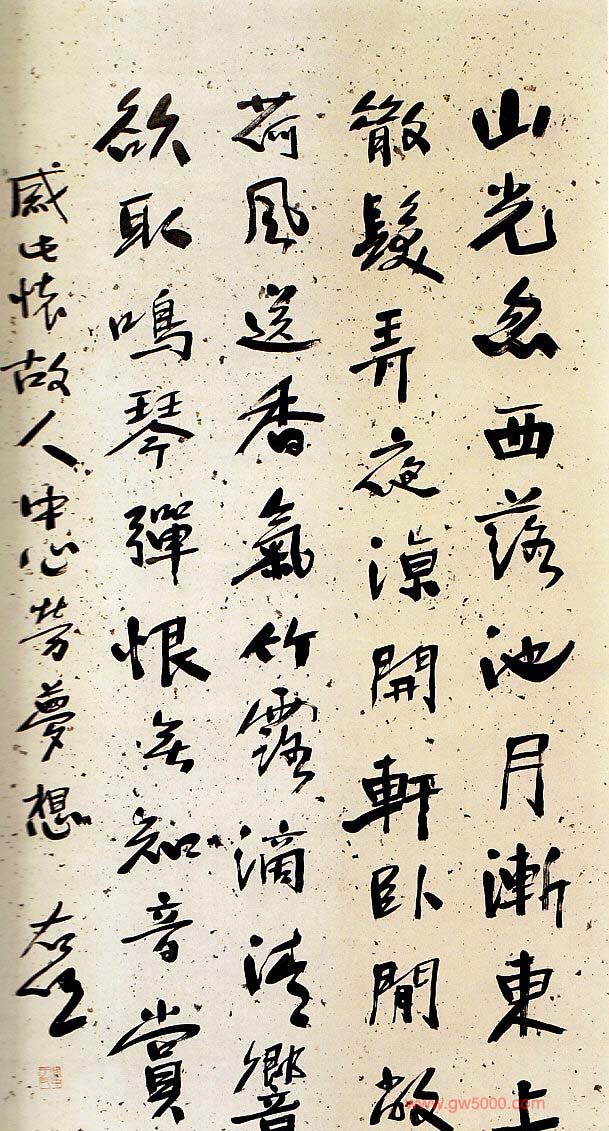 山光忽西落池月漸東上
散髮弄夜涼開軒臥閒敞
荷風送香氣竹露滴清響
欲取鳴琴彈恨無知音賞
感此懷故人中心勞夢想 右任
www.gw5000.com